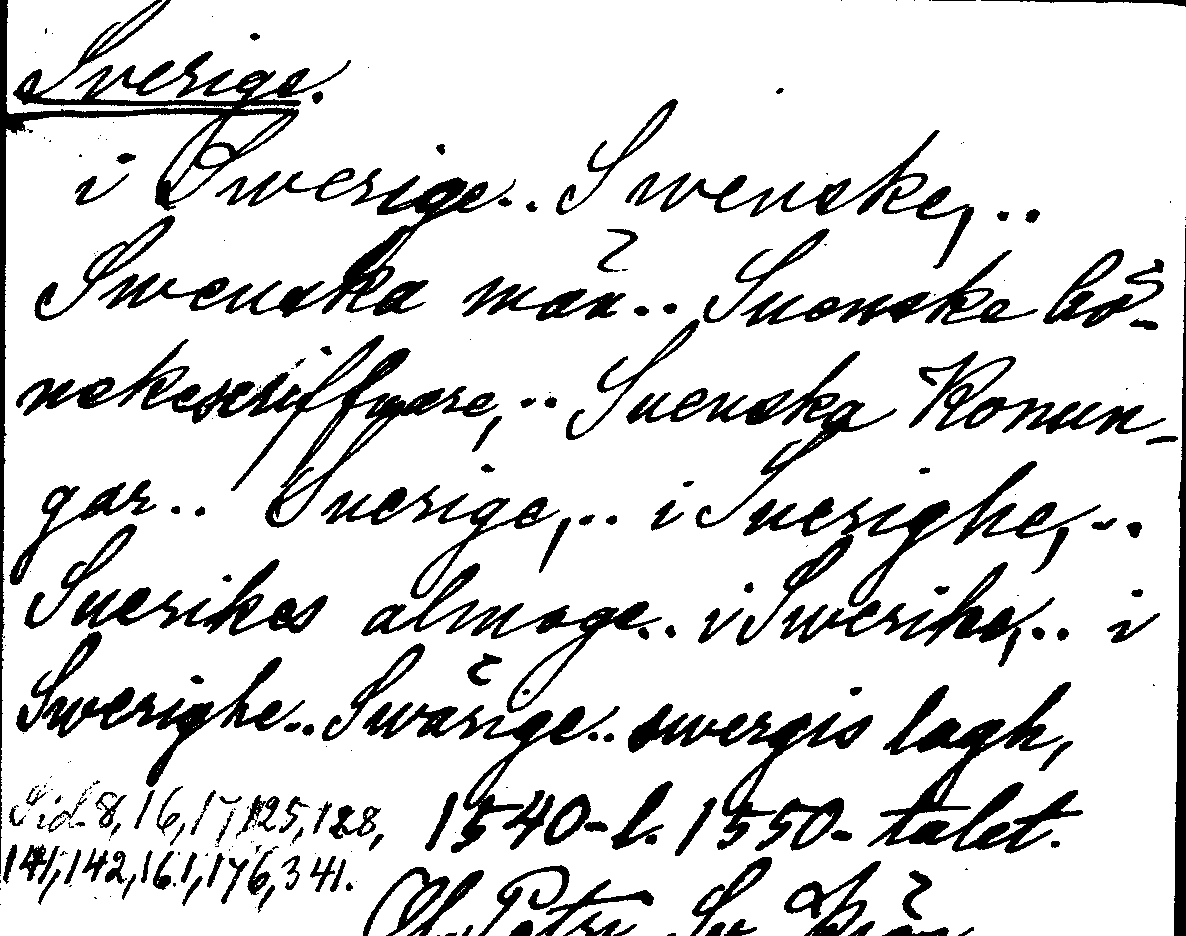 Sverige.
i Swerige.. Swenske,..
Swenska män.. Suenske bö-
nekescriffware,.. Suenska Konun-
gar.. Suerige,.. i Suerighe,..
Suerikes almoge.. i Swerike,.. i
Swerighe.. Swärige.. swergis lagh,
Sid. 8, 16, 17, 125, 128, 1540- l. 1550- talet.
141, 142, 161, 176, 341.
Ol. Petri Sv. Krön